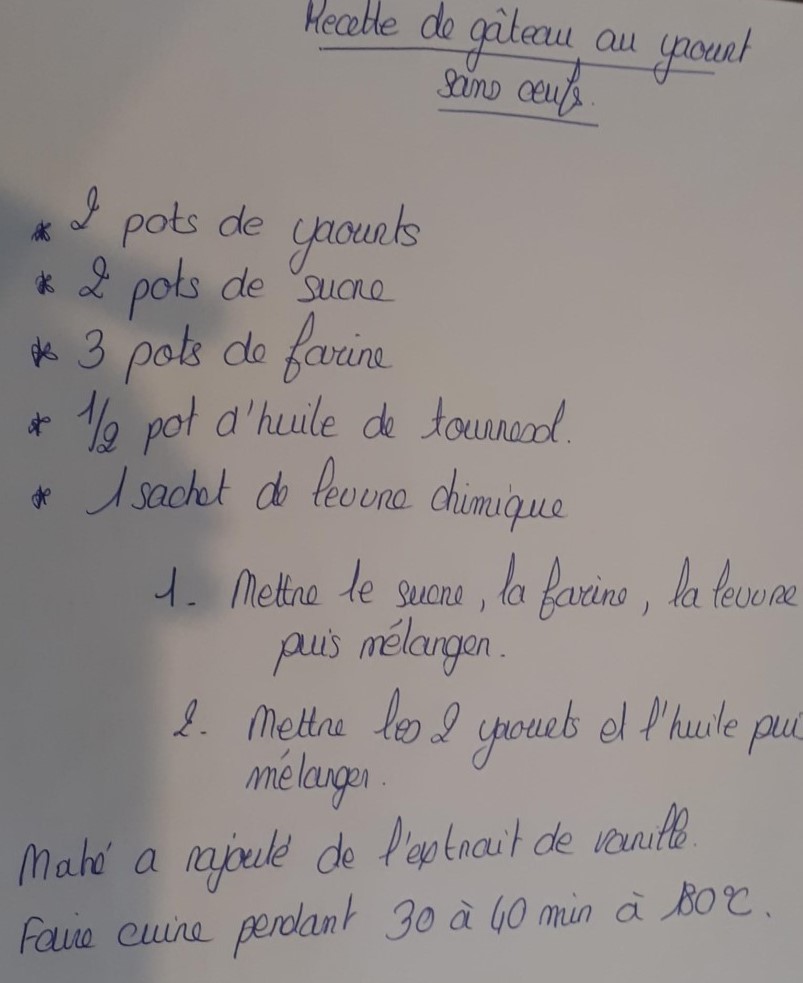 Recette de gâteau au yaourt
sans oeufs.
* 2 pots de yaourts
* 2 pots de sucre
* 3 pots de farine
* 1/2 pot d'huile de tournesol.
* 1 sachet de levure chimique
1. Mettre le sucre, la farine, la levure
puis mélanger.
2. Mettre les 2 yaouets et l'huile pui
mélanger.
Mahé a rajouté de l'extrait de vanille.
Faire cuire pendant 30 à 40 min à 180°C.